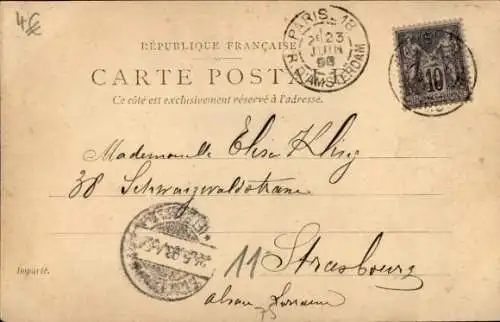 4€
RÉPUBLIQUE FRANÇAISE
PARIS 18
23
JUIN
98
R. D'AMSTERDAM
10
CARTE POSTA
Ce côté est exclusivement réservé à l'adresse.
Mademoiselle Elise Kling
38 Schwarzwaldstrasse
11 Strasbourg
Alsace-Lorraine
Imparté.